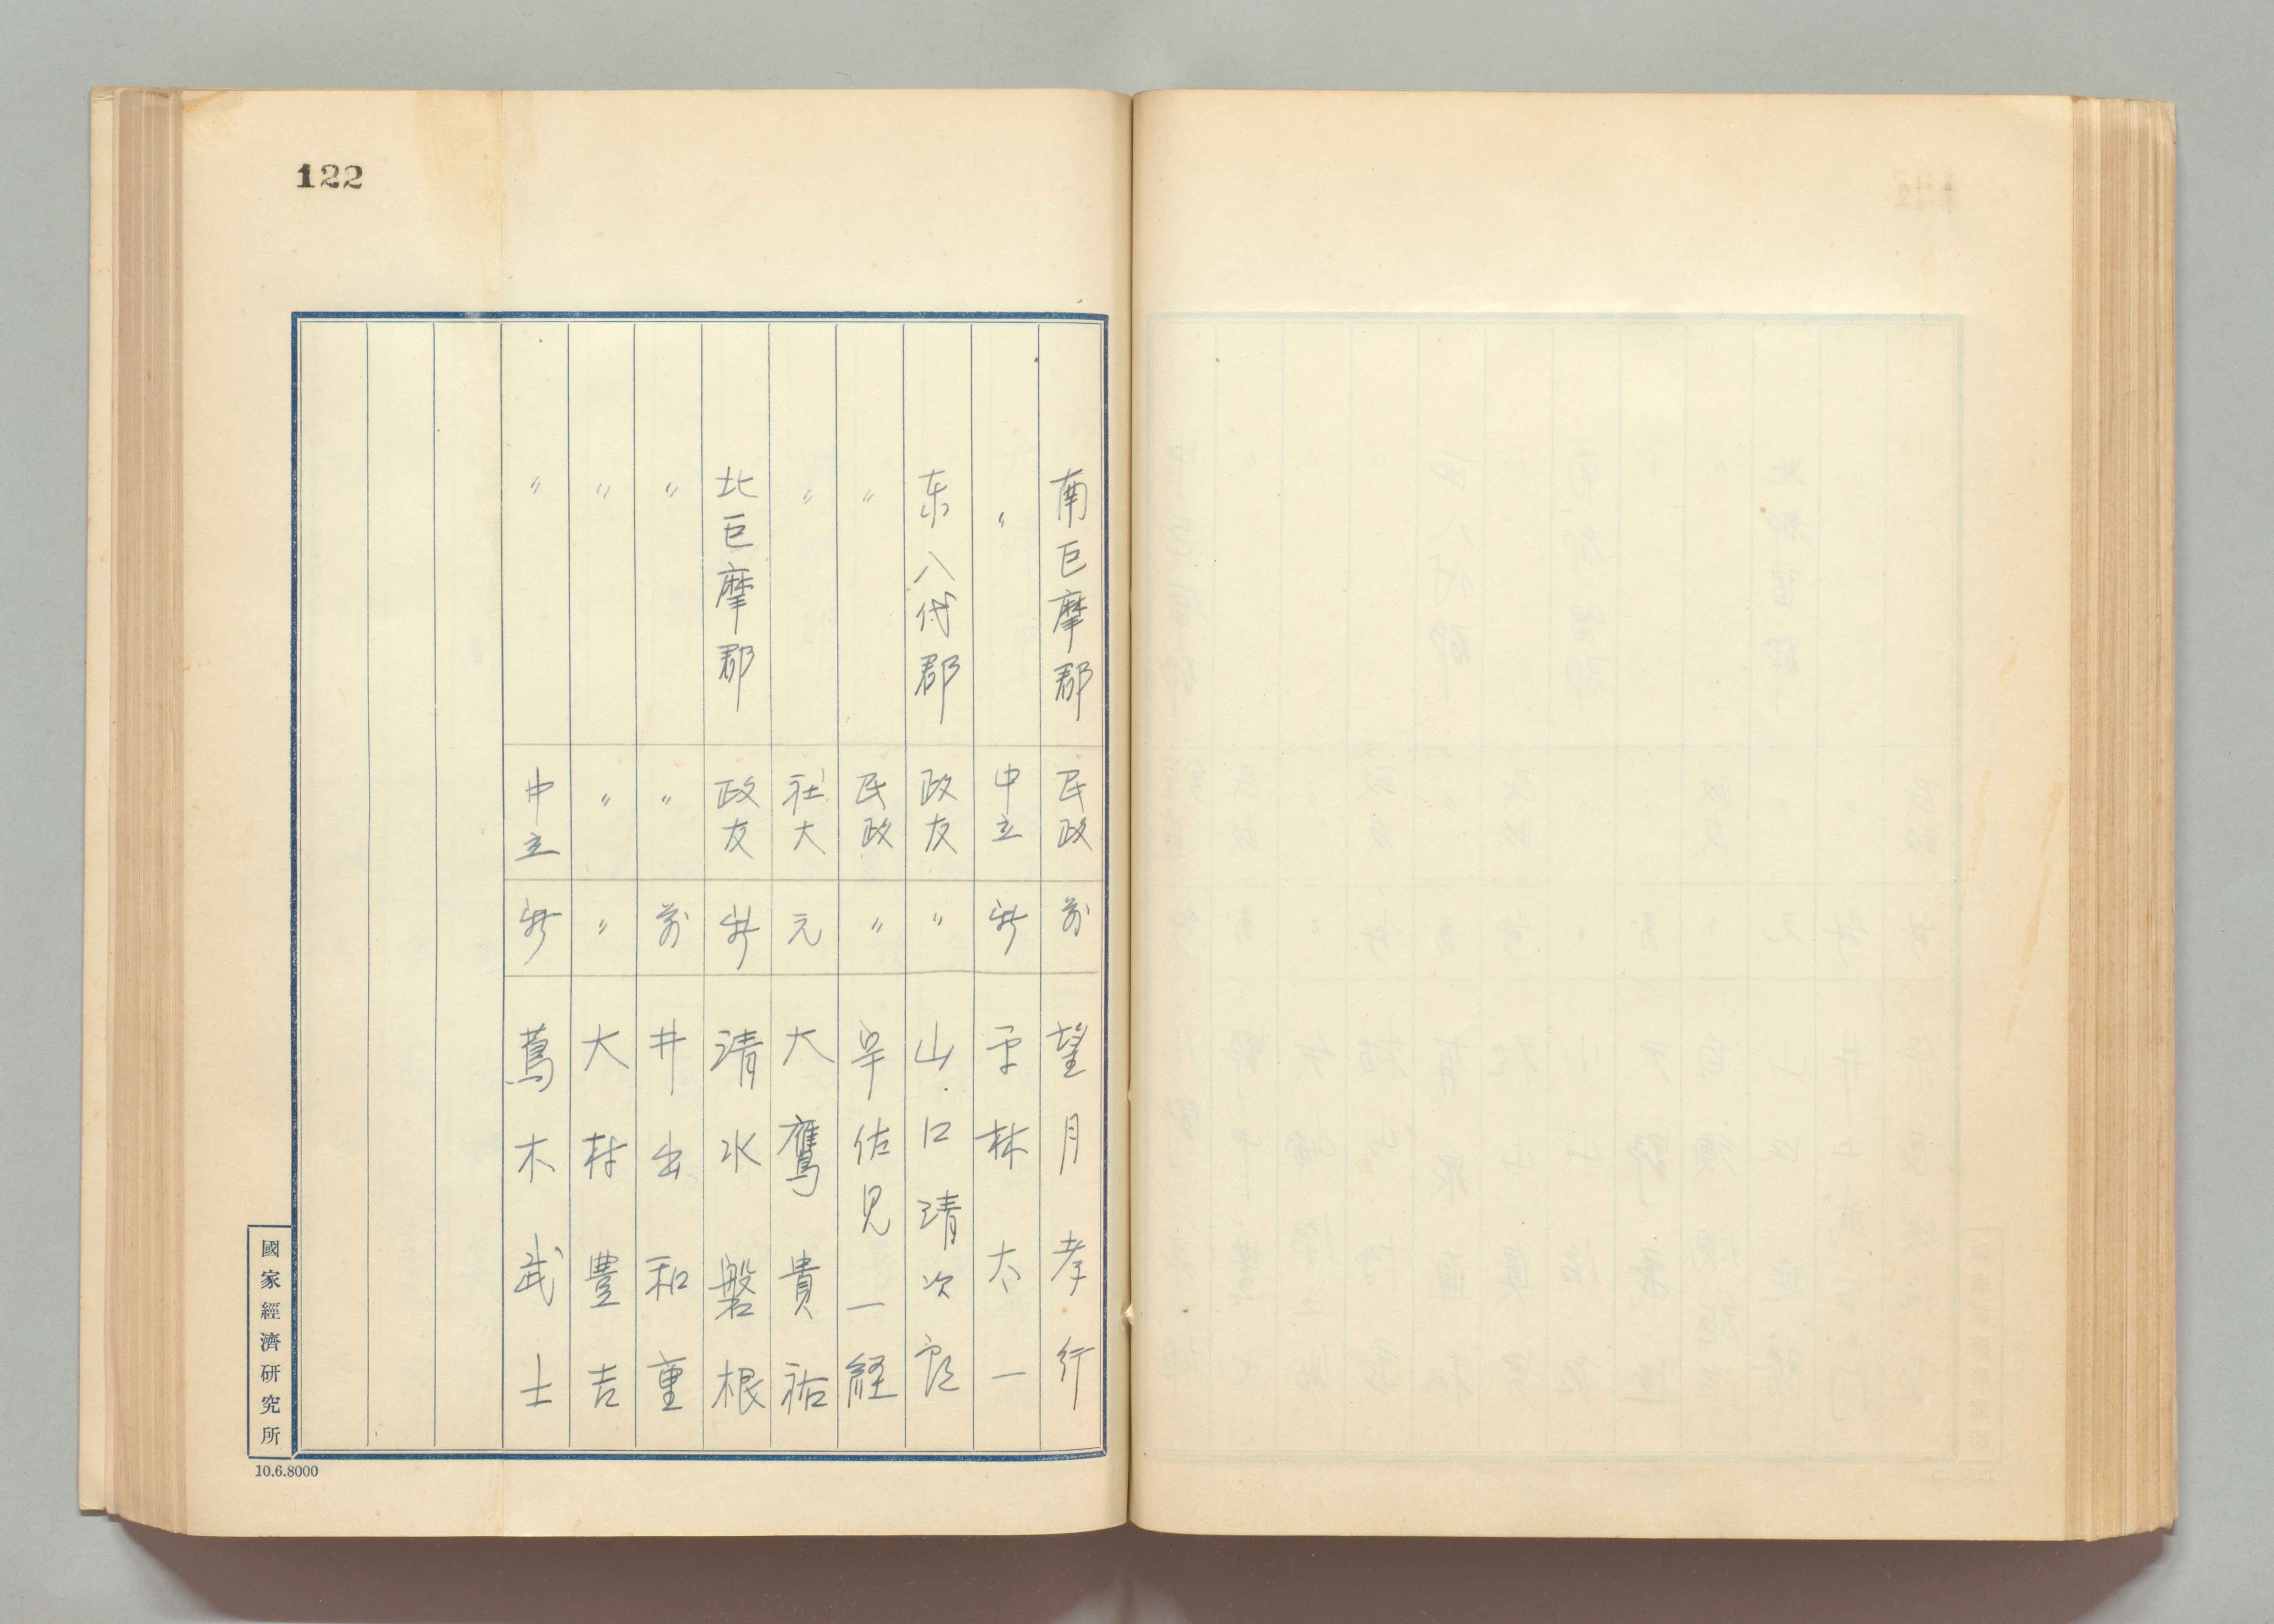 122
南巨摩郡 民政 前 望月孝行
〃 中立 新 平林太一
东八代郡 政友 〃 山口清次郎
〃 民政 〃 宇佐見一経
〃 社大 元 大鷹貴祐
北巨摩郡 政友 新 清水磐根
〃 〃 前 井出和重
〃 〃 〃 大村豊吉
〃 中立 新 蔦木武士
國家經濟研究所
10.6.8000